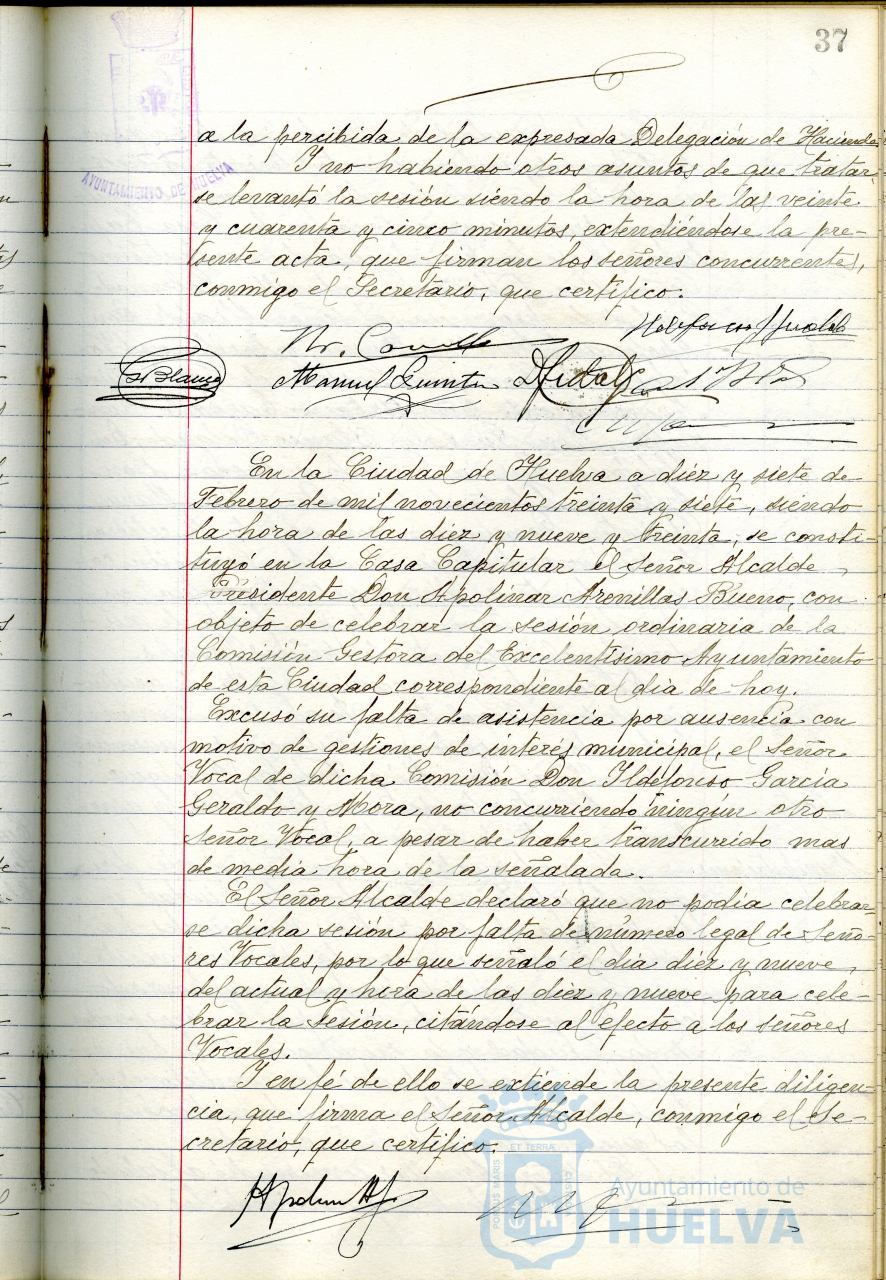 37
AYUNTAMIENTO DE HUELVA
a la percibida de la expresada Delegación de Hacienda.
Y no habiendo otros asuntos de que tratar
se levantó la sesión siendo la hora de las veinte
y cuarenta y cinco minutos, extendiéndose la pre-
sente acta, que firman los señores concurrentes,
conmigo el Secretario, que certifico.
Manuel Quintu
En la Ciudad de Huelva a diéz y siete de
Febrero de mil novecientos treinta y siete, siendo
la hora de las diéz y nueve y treinta, se consti-
tuyó en la Casa Capitular el Señor Alcalde
Presidente Don Apolinar Arenillas Bueno, con
objeto de celebrar la sesión ordinaria de la
Comisión Gestora del Excelentísimo Ayuntamiento
de esta Ciudad correspondiente al dia de hoy.
Excusó su falta de asistencia por ausencia con
motivo de gestiones de interés municipal, el Señor
Vocal de dicha Comisión Don Ildefonso Garcia
Geraldo y Mora, no concurriendo ningún otro
Señor Vocal, a pesar de haber transcurrido mas
de media hora de la señalada.
El Señor Alcalde declaró que no podia celebrar-
se dicha sesión por falta de número legal de Seño-
res Vocales, por lo que señaló el dia diéz y nueve
del actual y hora de las diéz y nueve para cele-
brar la sesión, citándose al efecto a los señores
Vocales.
Y en fé de ello se extiende la presente diligen-
cia, que firma el Señor Alcalde, conmigo el Se-
cretario, que certifico.
PORTUS MARIS ET TERRÆ CUSTODIA
Ayuntamiento de
HUELVA